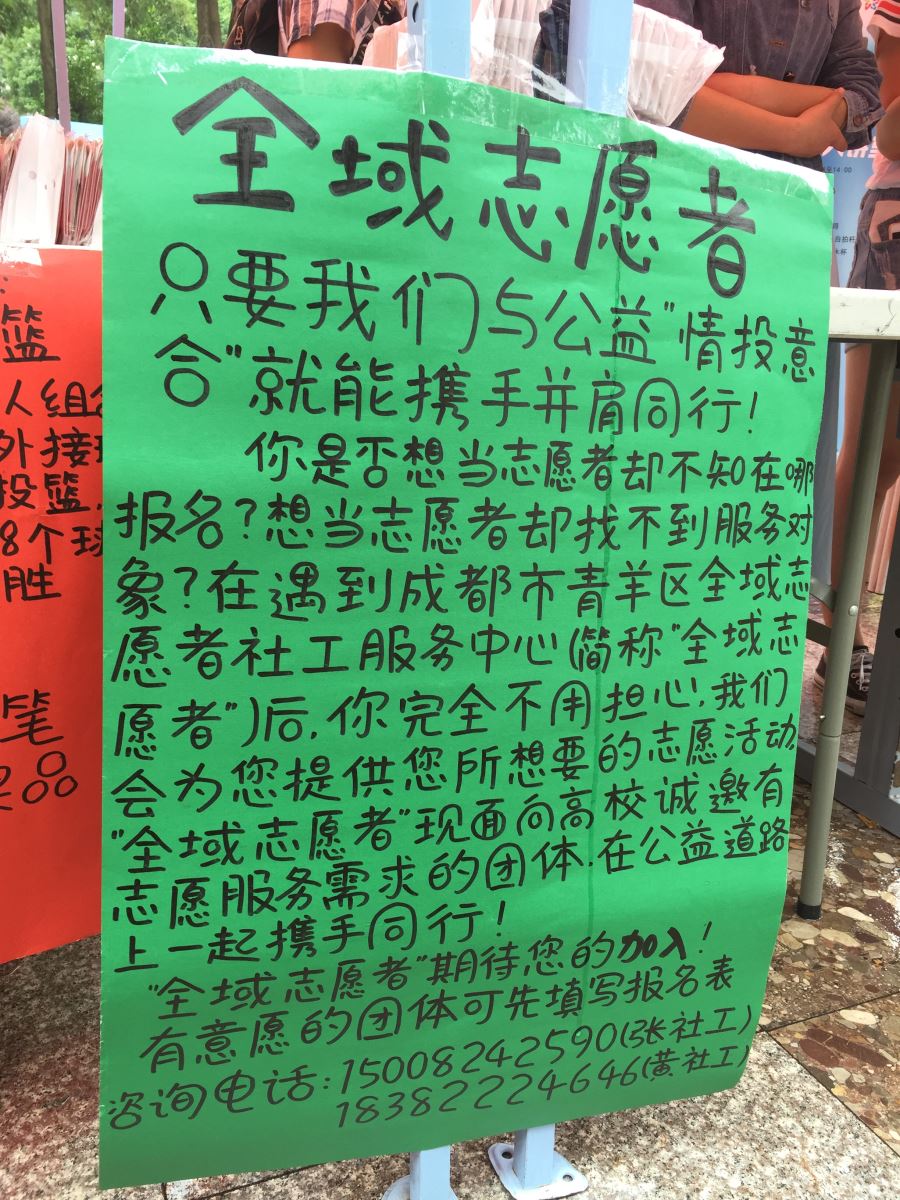 全域志愿者
只要我们与公益"情投意
合"就能携手并肩同行!
你是否想当志愿者却不知在哪
报名?想当志愿者却找不到服务对
象?在遇到成都市青羊区全域志
愿者社工服务中心(简称"全域志
愿者")后,你完全不用担心,我们
会为您提供您所想要的志愿活动,
"全域志愿者"现面向高校诚邀有
志愿服务需求的团体,在公益道路
上一起携手同行!
"全域志愿者"期待您的加入!
有意愿的团体可先填写报名表
咨询电话:15008242590(张社工)
18382224646(黄社工)
篮
人组
外接
投篮
8个球
胜
笔
品